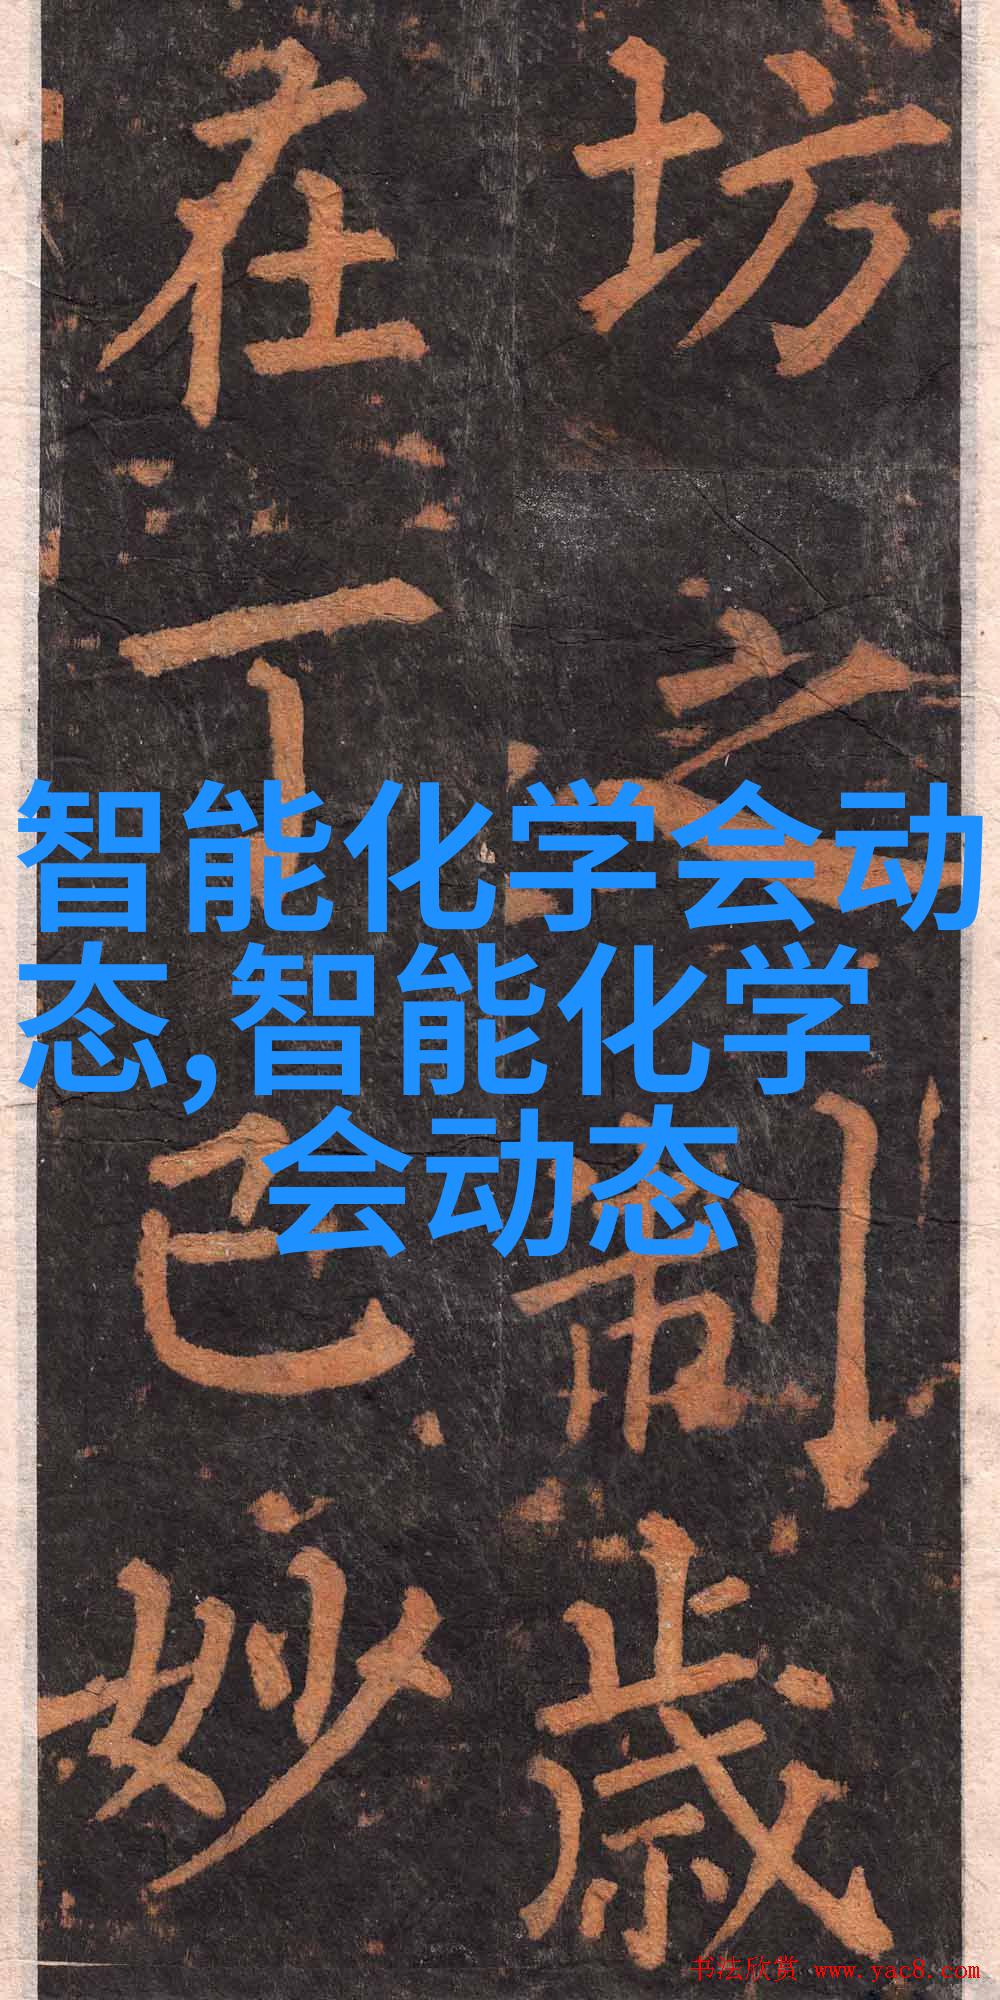 坊之制歲
在丁巳妙
智能化学会动
态,智能化学
会动态
书法欣赏 www.yac8.com